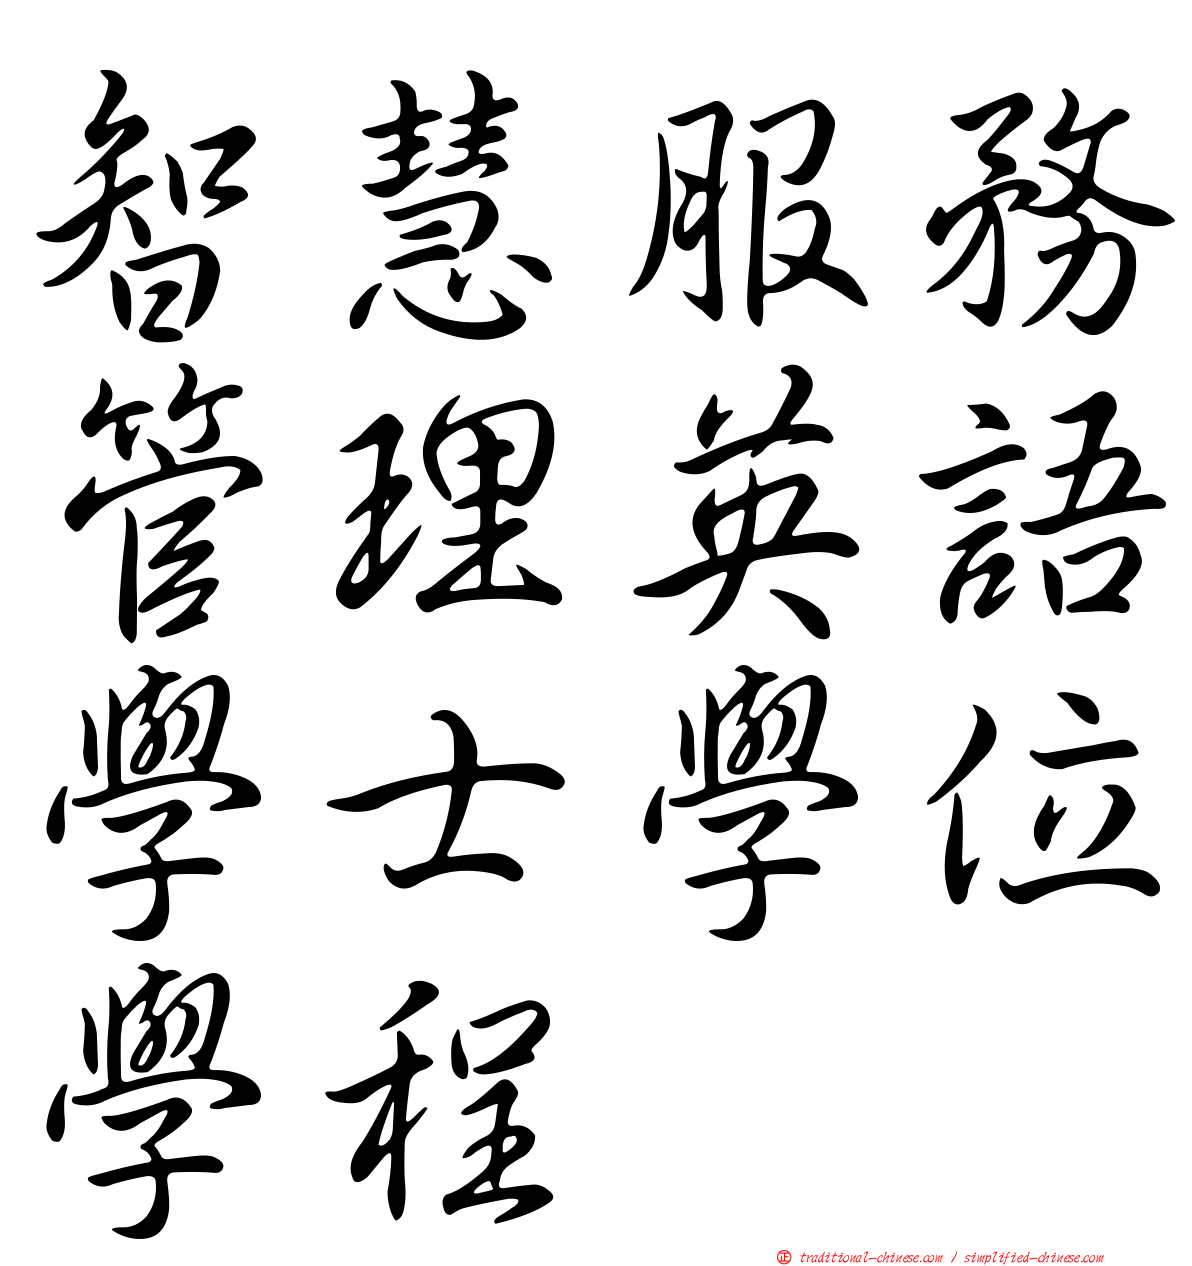 智慧服務
管理英語
學士學位
學程
正 traditional-chinese.com / simplified-chinese.com